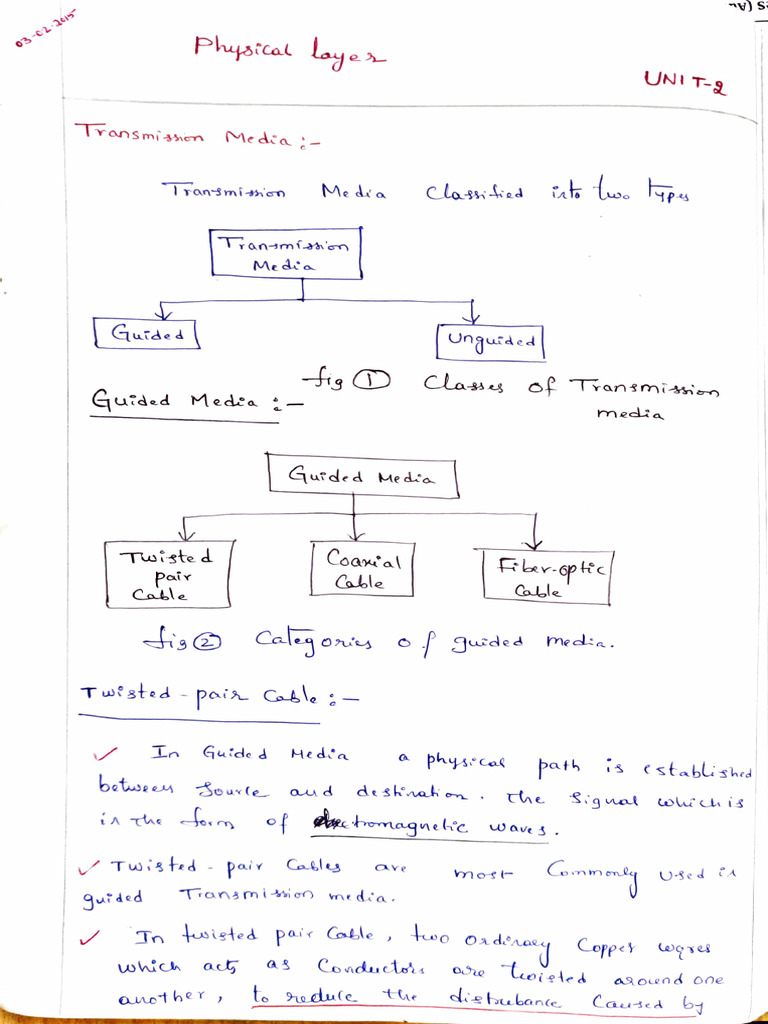 03-02-2015
Physical Layer
UNIT-2
Transmission Media :-
Transmission Media Classified into two types
Transmission
Media
Guided
Unguided
fig 1 Classes of Transmission
media
Guided Media :-
Guided Media
Twisted
pair
Cable
Coaxial
Cable
Fiber-optic
Cable
fig 2 Categories of guided media.
Twisted-pair Cable :-
✓ In Guided Media a physical path is established
between source and destination. The signal which is
in the form of electromagnetic waves.
✓ Twisted-pair Cables are most Commonly used in
guided Transmission media.
✓ In twisted pair Cable, two ordinary Copper wires
which acts as Conductors are twisted around one
another, to reduce the distrubance Caused by